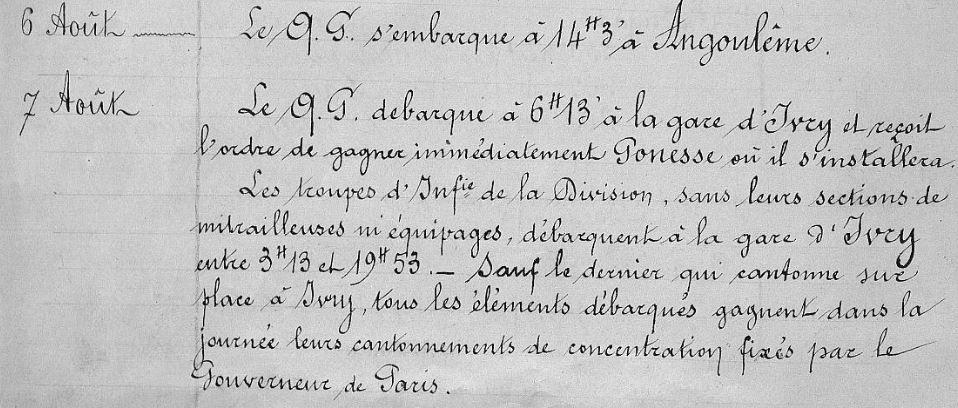 6 Août Le Q. G. s'embarque à 14H3' à Angoulême.
7 Août Le Q. G. debarque à 6H13' à la gare d'Ivry et reçoit
l'ordre de gagner immédiatement Gonesse où il s'installera.
Les troupes d'Infie de la Division, sans leurs sections de
mitrailleuses ni équipages, débarquent à la gare d'Ivry
entre 3H13 et 19H53. — Sauf le dernier qui cantonne sur
place à Ivry, tous les éléments débarqués gagnent dans la
journée leurs cantonnements de concentration fixés par le
Gouverneur de Paris.